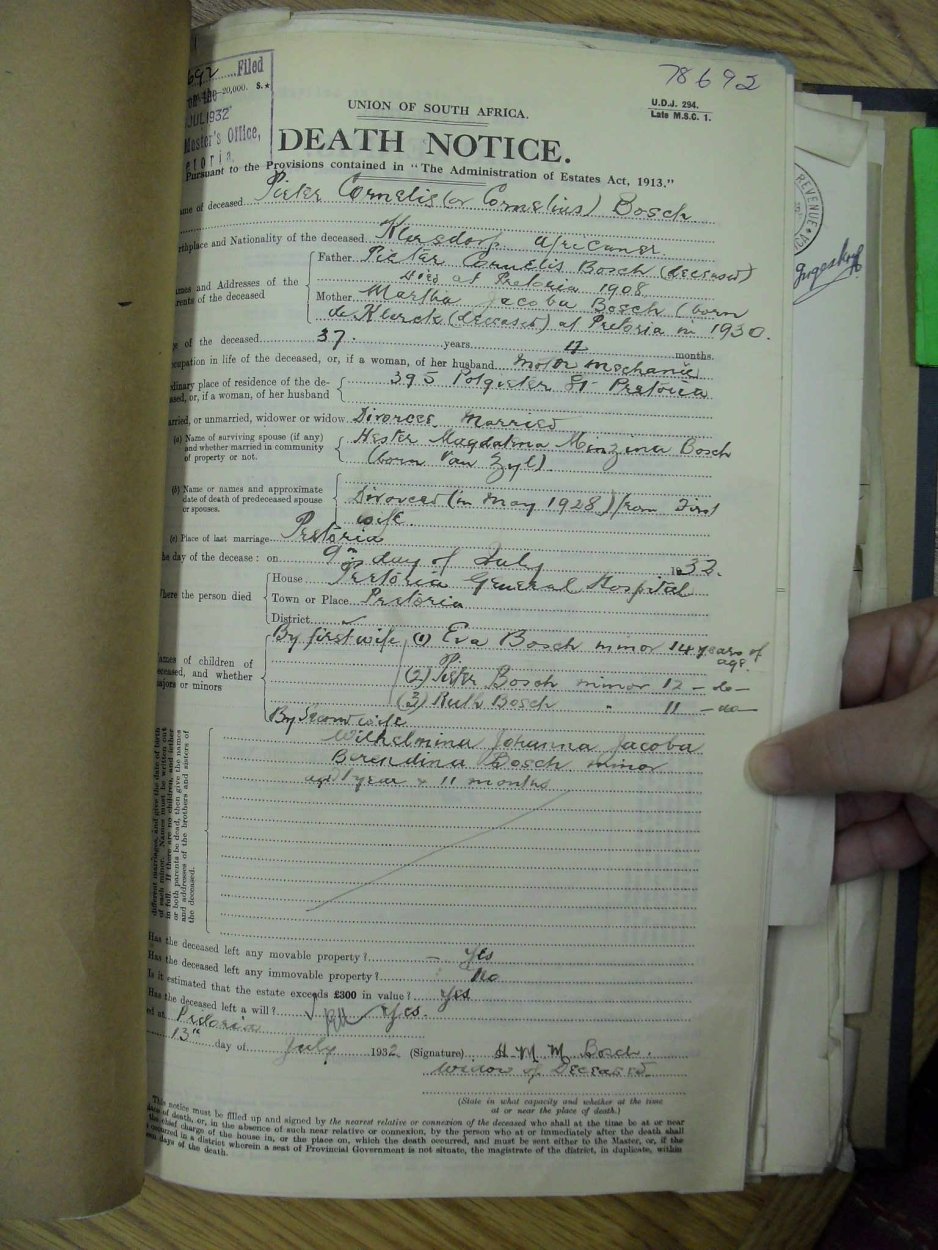 692 Filed
20,000. S.
JUL 1932
Master's Office,
etoria.
78692
UNION OF SOUTH AFRICA.
U.D.J. 294.
Late M.S.C. 1.
DEATH NOTICE.
Pursuant to the Provisions contained in "The Administration of Estates Act, 1913."
ame of deceased Pieter Cornelis (or Cornelius) Bosch
rthplace and Nationality of the deceased Klersdorp Africaner.
ames and Addresses of the
rents of the deceased
Father Pieter Cornelis Bosch (deceased)
died at Pretoria 1908
Mother Martha Jacoba Bosch (born
de Klerck (deceased) at Pretoria in 1930.
e of the deceased 37 years months.
ccupation in life of the deceased, or, if a woman, of her husband Motor Mechanic
rdinary place of residence of the de-
ased, or, if a woman, of her husband
395 Potgieter St Pretoria
arried, or unmarried, widower or widow Divorcee Married
(a) Name of surviving spouse (if any)
and whether married in community
of property or not.
Hester Magdalina Bosch
(born Van Zyl)
(b) Name or names and approximate
date of death of predeceased spouse
or spouses.
Divorced (in May 1928) from First
wife.
(c) Place of last marriage Pretoria
he day of the decease: on 9th day of July 1932.
here the person died
House Pretoria General Hospital
Town or Place Pretoria
District
ames of children of
eceased, and whether
ajors or minors
By first wife (1) Eva Bosch minor 14 years of
age.
(2) Pieter Bosch minor 12 -do-
(3) Ruth Bosch " 11 -do-
By Second wife
Wilhelmina Johanna Jacoba
Berendina Bosch minor
aged 1 year & 11 months
different marriages, and give the date of birth
of each minor. Names must be written out
in full. If there are no children, and either
or both parents be dead, then give the names
and addresses of the brothers and sisters of
the deceased.
Has the deceased left any movable property? - Yes
Has the deceased left any immovable property? No
Is it estimated that the estate exceeds £300 in value? Yes
Has the deceased left a will? Yes.
ed at Pretoria
13th day of July 1932 (Signature) H. M. M. Bosch.
Widow of Deceased.
(State in what capacity and whether at the time
at or near the place of death.)
This notice must be filled up and signed by the nearest relative or connexion of the deceased who shall at the time be at or near
lace of death, or, in the absence of such near relative or connexion, by the person who at or immediately after the death shall
the chief charge of the house in, or the place on, which the death occurred, and must be sent either to the Master, or, if the
occurred in a district wherein a seat of Provincial Government is not situate, the magistrate of the district, in duplicate, within
en days of the death.
REVENUE